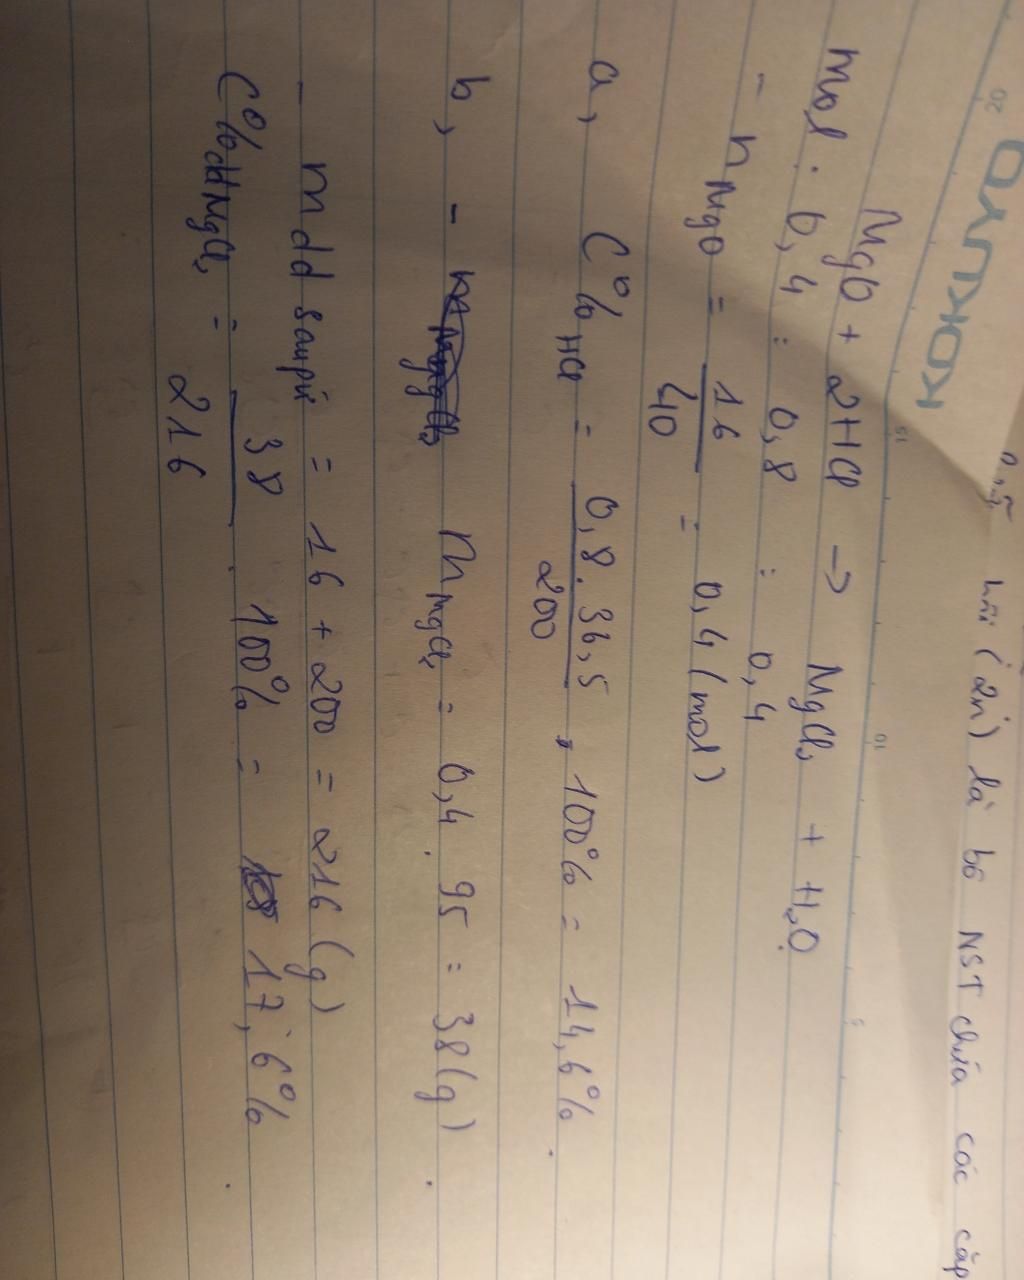 20
KOKUYO
15
10
5
hài (2n) là bộ NST chứa các cặp
MgO + 2HCl → MgCl₂ + H₂O
mol : 0,4 : 0,8 : 0,4
- nMgO = 16/40 = 0,4 (mol)
a, C%HCl = 0,8.36,5/200 . 100% = 14,6%
b, - mMgCl₂ = 0,4 . 95 = 38(g)
- mdd saupứ = 16 + 200 = 216 (g)
C%ddMgCl₂ = 38/216 . 100% = 17,6%